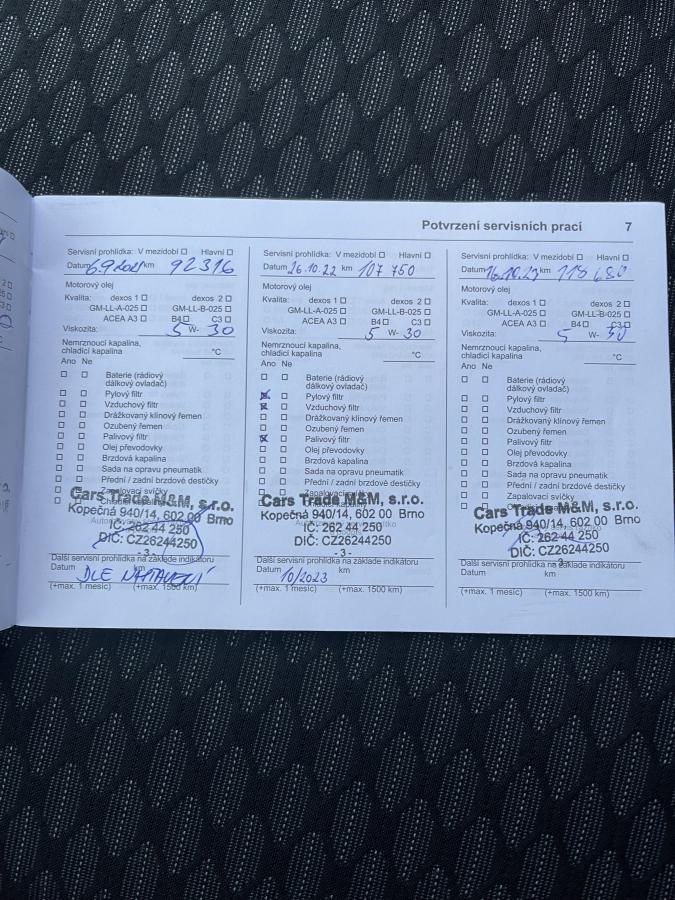 Potvrzení servisních prací 7
Servisní prohlídka: V mezidobí Hlavní
Datum 6.9.2021 km 92316
Motorový olej
Kvalita: dexos 1 dexos 2
GM-LL-A-025 GM-LL-B-025
ACEA A3 B4 C3
Viskozita: 5 W- 30
Nemrznoucí kapalina,
chladicí kapalina °C
Ano Ne
Baterie (rádiový
dálkový ovladač)
Pylový filtr
Vzduchový filtr
Drážkovaný klínový řemen
Ozubený řemen
Palivový filtr
Olej převodovky
Brzdová kapalina
Sada na opravu pneumatik
Přední / zadní brzdové destičky
Zapalovací svíčky
Cars Trade M&M, s.r.o.
Kopečná 940/14, 602 00 Brno
IČ: 262 44 250
DIČ: CZ26244250
- 3 -
Další servisní prohlídka na základě indikátoru
Datum km
DLE NASTAVENÍ
(+max. 1 měsíc) (+max. 1500 km)
Servisní prohlídka: V mezidobí Hlavní
Datum 26.10.22 km 107 750
Motorový olej
Kvalita: dexos 1 dexos 2
GM-LL-A-025 GM-LL-B-025
ACEA A3 B4 C3
Viskozita: 5 W- 30
Nemrznoucí kapalina,
chladicí kapalina °C
Ano Ne
Baterie (rádiový
dálkový ovladač)
Pylový filtr
Vzduchový filtr
Drážkovaný klínový řemen
Ozubený řemen
Palivový filtr
Olej převodovky
Brzdová kapalina
Sada na opravu pneumatik
Přední / zadní brzdové destičky
Zapalovací svíčky
Cars Trade M&M, s.r.o.
Kopečná 940/14, 602 00 Brno
IČ: 262 44 250
DIČ: CZ26244250
- 3 -
Další servisní prohlídka na základě indikátoru
Datum 10/2023 km
(+max. 1 měsíc) (+max. 1500 km)
Servisní prohlídka: V mezidobí Hlavní
Datum 16.10.23 km 118 680
Motorový olej
Kvalita: dexos 1 dexos 2
GM-LL-A-025 GM-LL-B-025
ACEA A3 B4 C3
Viskozita: 5 W- 30
Nemrznoucí kapalina,
chladicí kapalina °C
Ano Ne
Baterie (rádiový
dálkový ovladač)
Pylový filtr
Vzduchový filtr
Drážkovaný klínový řemen
Ozubený řemen
Palivový filtr
Olej převodovky
Brzdová kapalina
Sada na opravu pneumatik
Přední / zadní brzdové destičky
Zapalovací svíčky
Cars Trade M&M, s.r.o.
Kopečná 940/14, 602 00 Brno
IČ: 262 44 250
DIČ: CZ26244250
Další servisní prohlídka na základě indikátoru
Datum km
(+max. 1 měsíc) (+max. 1500 km)